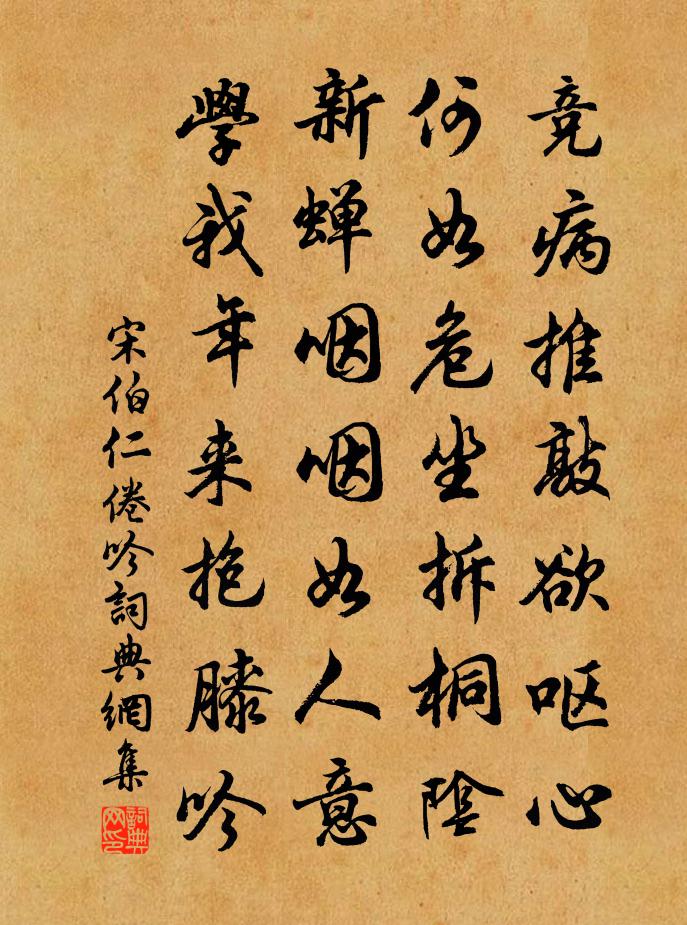 竞病推敲欲呕心
何如危坐拆桐陰
新蝉咽咽如人意
學我年来抱膝吟
宋伯仁倦吟詞典網集
詞典网印